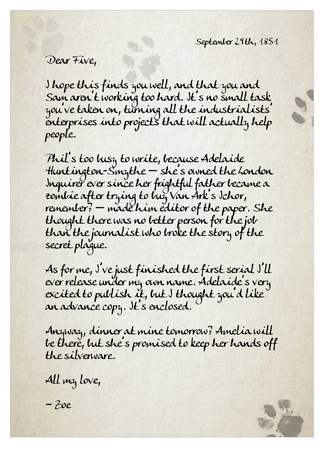 September 29th, 1851
Dear Five,
I hope this finds you well, and that you and
Sam aren't working too hard. It's no small task
you've taken on, turning all the industrialists'
enterprises into projects that will actually help
people.
Phil's too busy to write, because Adelaide
Huntington-Smythe – she's owned the London
Inquirer ever since her frightful father became a
zombie after trying to buy Van Ark's Ichor,
remember? – made him editor of the paper. She
thought there was no better person for the job
than the journalist who broke the story of the
secret plague.
As for me, I've just finished the first serial I'll
ever release under my own name. Adelaide's very
excited to publish it, but I thought you'd like
an advance copy. It's enclosed.
Anyway, dinner at mine tomorrow? Amelia will
be there, but she's promised to keep her hands off
the silverware.
All my love,
– Zoe